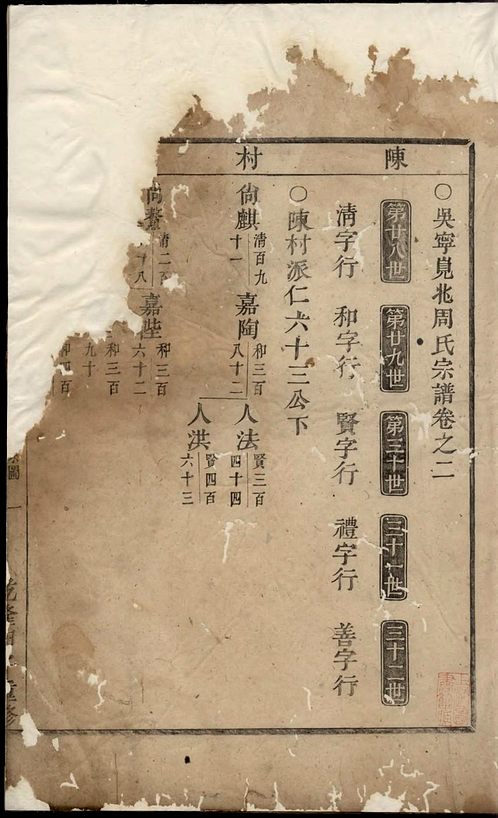 陳村
○吳寧見北周氏宗譜卷之二
第廿八世 第廿九世 第三十世 三十一世 三十二世
清字行 和字行 賢字行 禮字行 善字行
○陳村派仁六十三公下
尙麒 清百九十一 嘉陶 和三百八十二 人法 賢三百四十四
人洪 賢四百六十三
尙鰲 清二百 八 嘉陛 和三百六十二
和三百九十
和四百
圖 一
乾隆 重修